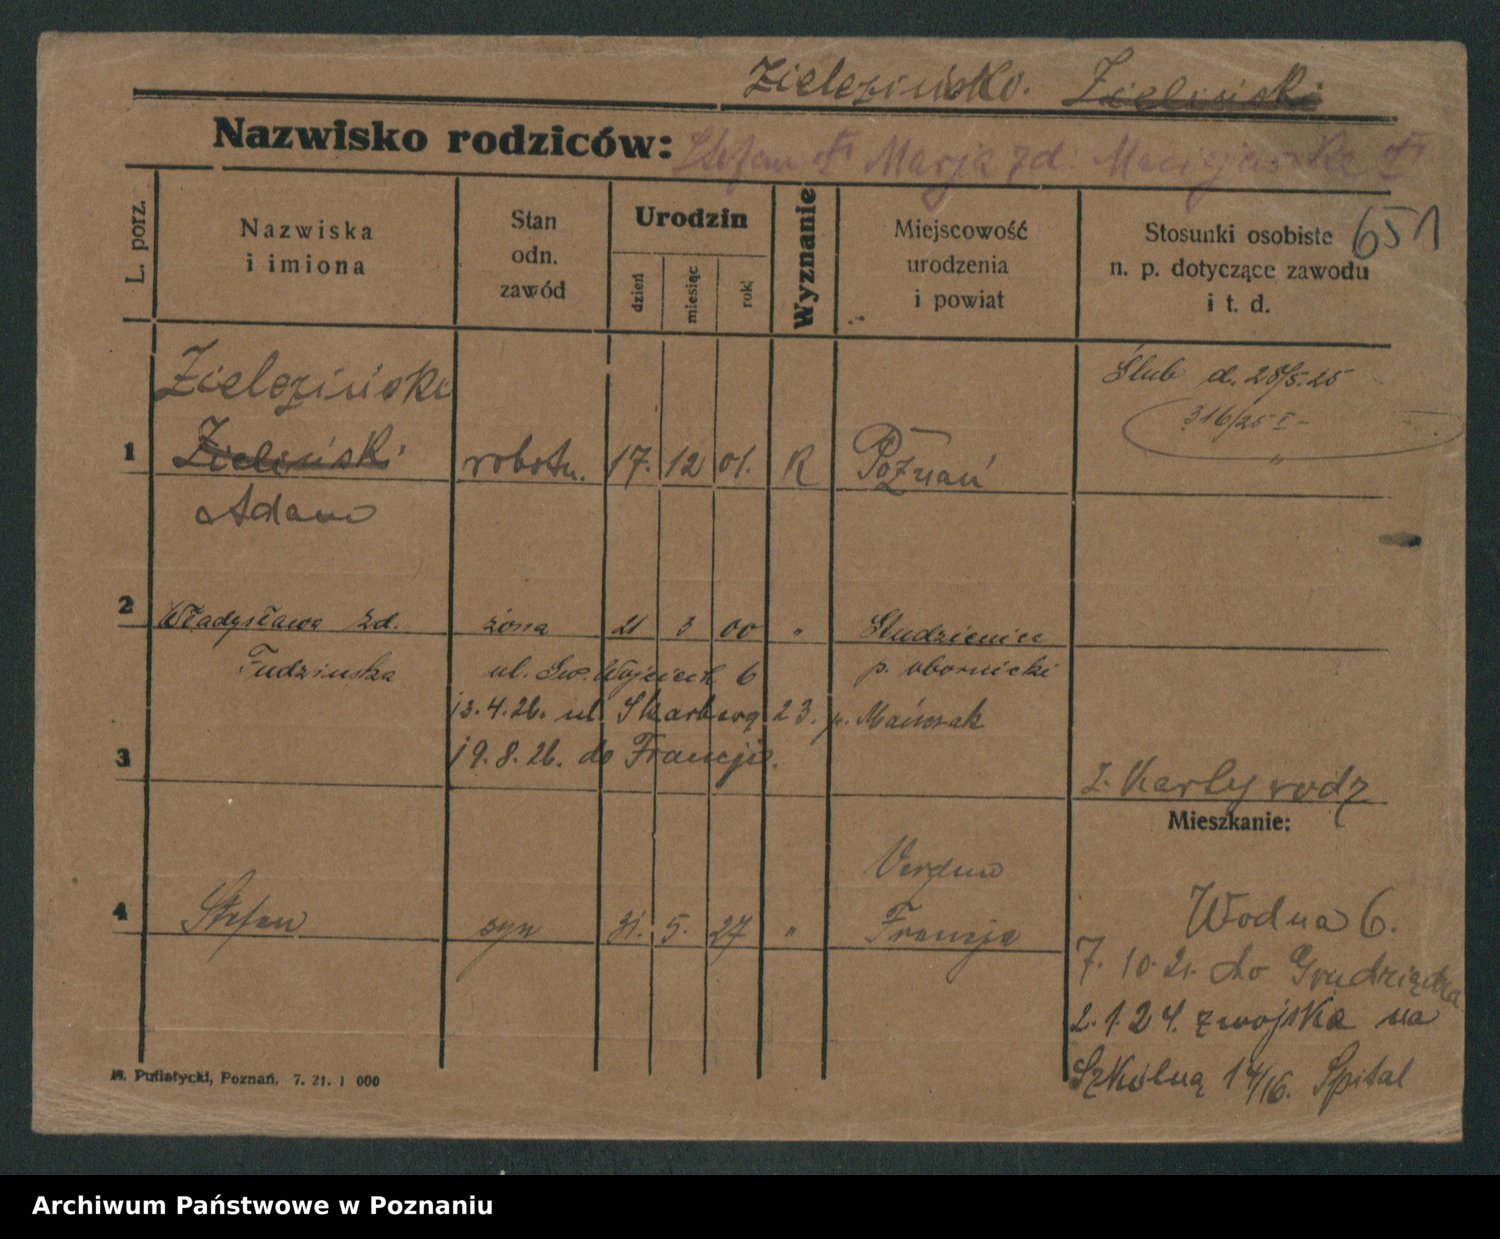 Zielezińsko. Zieliński
Nazwisko rodziców: Stefan † Marja zd. Maciejewska †
651
L. porz.
Nazwiska
i imiona
Stan
odn.
zawód
Urodzin
dzień
miesiąc
rok
Wyznanie
Miejscowość
urodzenia
i powiat
Stosunki osobiste
n. p. dotyczące zawodu
i t. d.
Zielezińske
Ślub d. 28/5.25
316/25 I
1 Zieliński robotn. 17. 12 01. R Poznań
Adam
2 Władysława zd. żona 21 3 00 " Studzieniec
Tudzinska ul. Św. Wojciech 6 p. obornicki
13.4.26. ul. Skarbową 23. p. Mańczak
3 19.8.26. do Francji.
z. Karty rodz
Mieszkanie:
Verdun
4 Stefan syn 31. 5. 27 " Francja
Wodna 6.
7.10.21. do Grudziądza
2.1.24. z wojska na
Szkólną 14/16. Spital
M. Pufiatycki, Poznań. 7. 21. 1 000
Archiwum Państwowe w Poznaniu